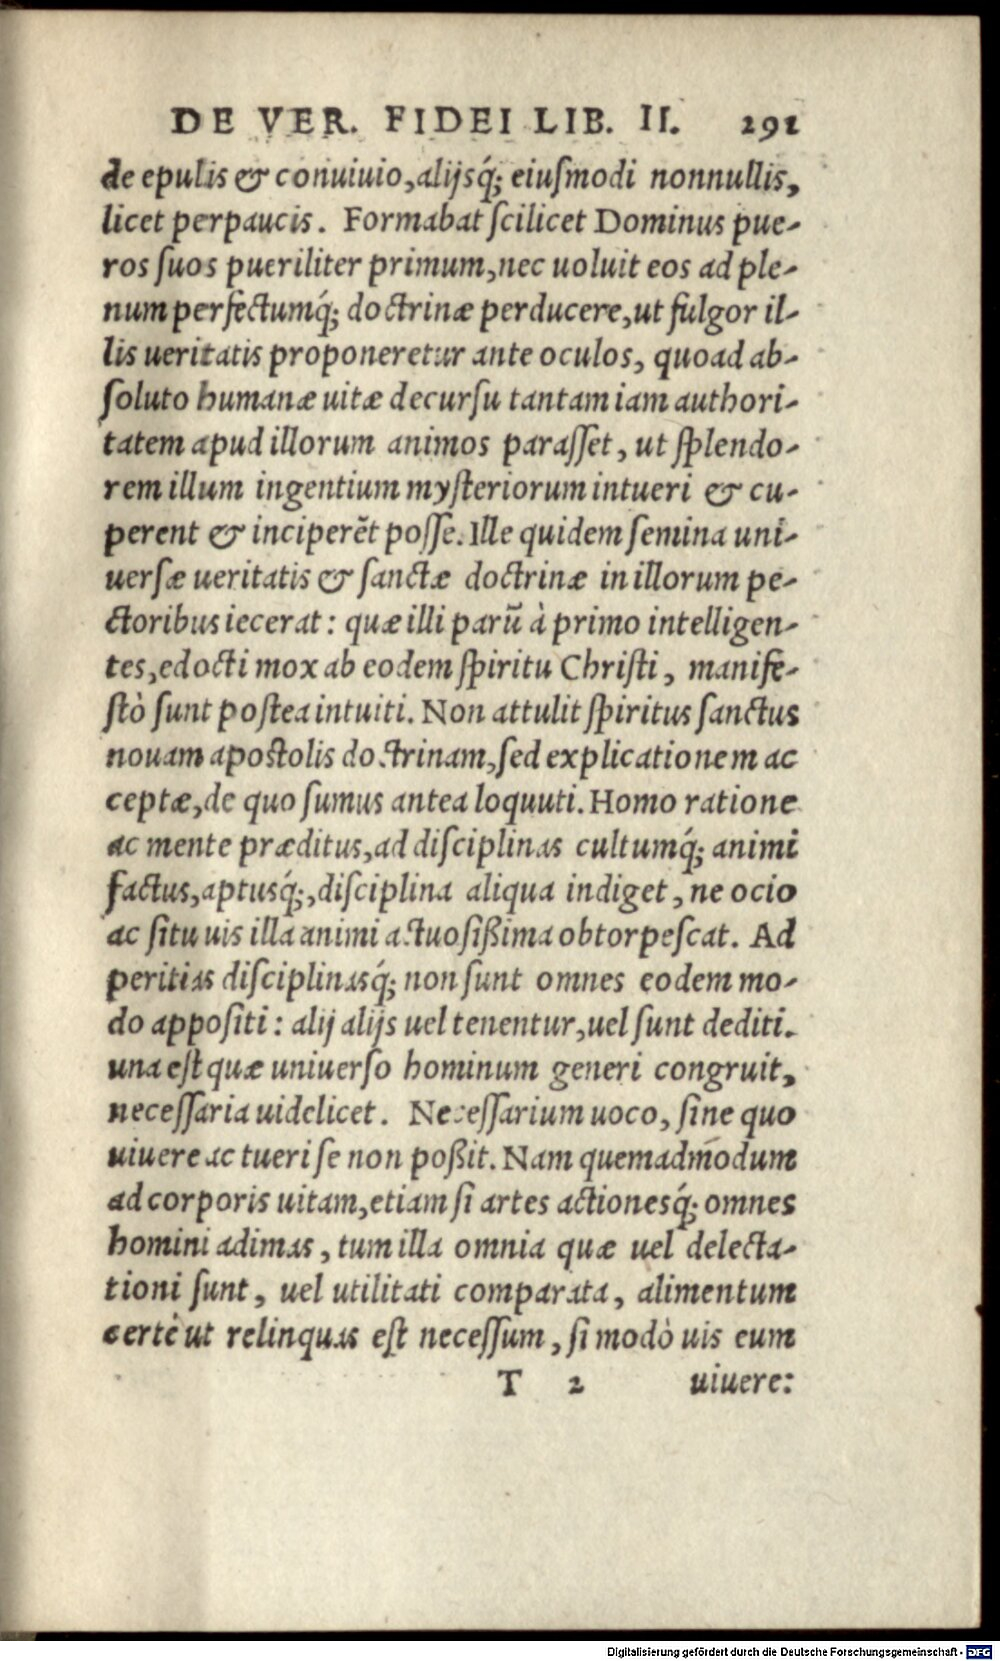 DE VER. FIDEI LIB. II. 291
de epulis & conuiuio, alijsq́; eiusmodi nonnullis,
licet perpaucis. Formabat scilicet Dominus pue-
ros suos pueriliter primum, nec uoluit eos ad ple-
num perfectumq́; doctrinæ perducere, ut fulgor il-
lis ueritatis proponeretur ante oculos, quoad ab-
soluto humanæ uitæ decursu tantam iam authori-
tatem apud illorum animos parasset, ut splendo-
rem illum ingentium mysteriorum intueri & cu-
perent & inciperẽt posse. Ille quidem semina uni-
uersæ ueritatis & sanctæ doctrinæ in illorum pe-
ctoribus iecerat: quæ illi parũ à primo intelligen-
tes, edocti mox ab eodem spiritu Christi, manife-
stò sunt postea intuiti. Non attulit spiritus sanctus
nouam apostolis doctrinam, sed explicationem ac
ceptæ, de quo sumus antea loquuti. Homo ratione
ac mente præditus, ad disciplinas cultumq́; animi
factus, aptusq́;, disciplina aliqua indiget, ne ocio
ac situ uis illa animi actuosißima obtorpescat. Ad
peritias disciplinasq́; non sunt omnes eodem mo-
do appositi: alij alijs uel tenentur, uel sunt dediti.
una est quæ uniuerso hominum generi congruit,
necessaria uidelicet. Necessarium uoco, sine quo
uiuere ac tueri se non poßit. Nam quemadm̃odum
ad corporis uitam, etiam si artes actionesq́; omnes
homini adimas, tum illa omnia quæ uel delecta-
tioni sunt, uel utilitati comparata, alimentum
certè ut relinquas est necessum, si modò uis eum
T 2 uiuere:
Digitalisierung gefördert durch die Deutsche Forschungsgemeinschaft - DFG